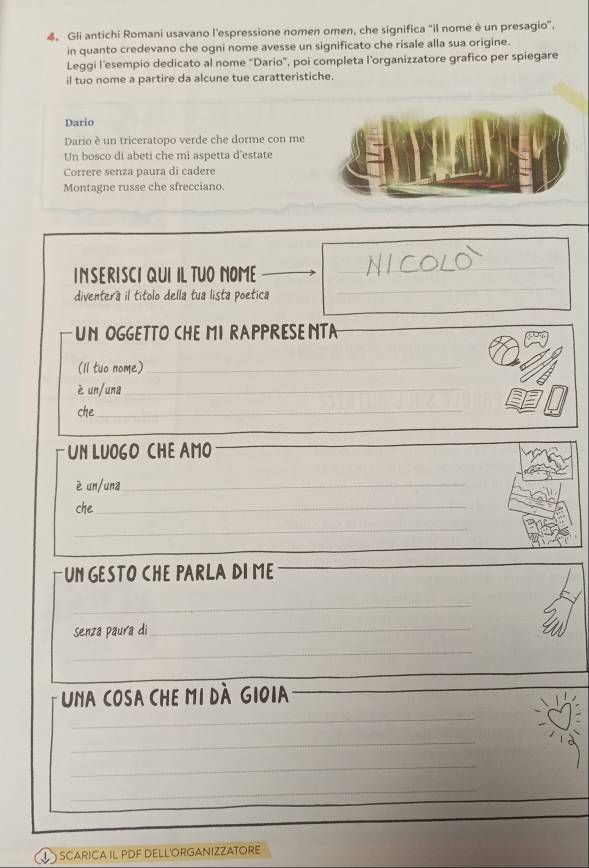 4. Gli antichi Romani usavano l'espressione nomen omen, che significa "il nome è un presagio",
in quanto credevano che ogni nome avesse un significato che risale alla sua origine.
Leggi l'esempio dedicato al nome "Dario", poi completa l'organizzatore grafico per spiegare
il tuo nome a partire da alcune tue caratteristiche.
Dario
Dario è un triceratopo verde che dorme con me
Un bosco di abeti che mi aspetta d'estate
Correre senza paura di cadere
Montagne russe che sfrecciano.
INSERISCI QUI IL TUO NOME
diventerà il titolo della tua lista poetica
NICOLÒ
UN OGGETTO CHE MI RAPPRESENTA
(Il tuo nome)
è un/una
che
UN LUOGO CHE AMO
è un/una
che
UN GESTO CHE PARLA DI ME
senza paura di
UNA COSA CHE MI DÀ GIOIA
SCARICA IL PDF DELL'ORGANIZZATORE